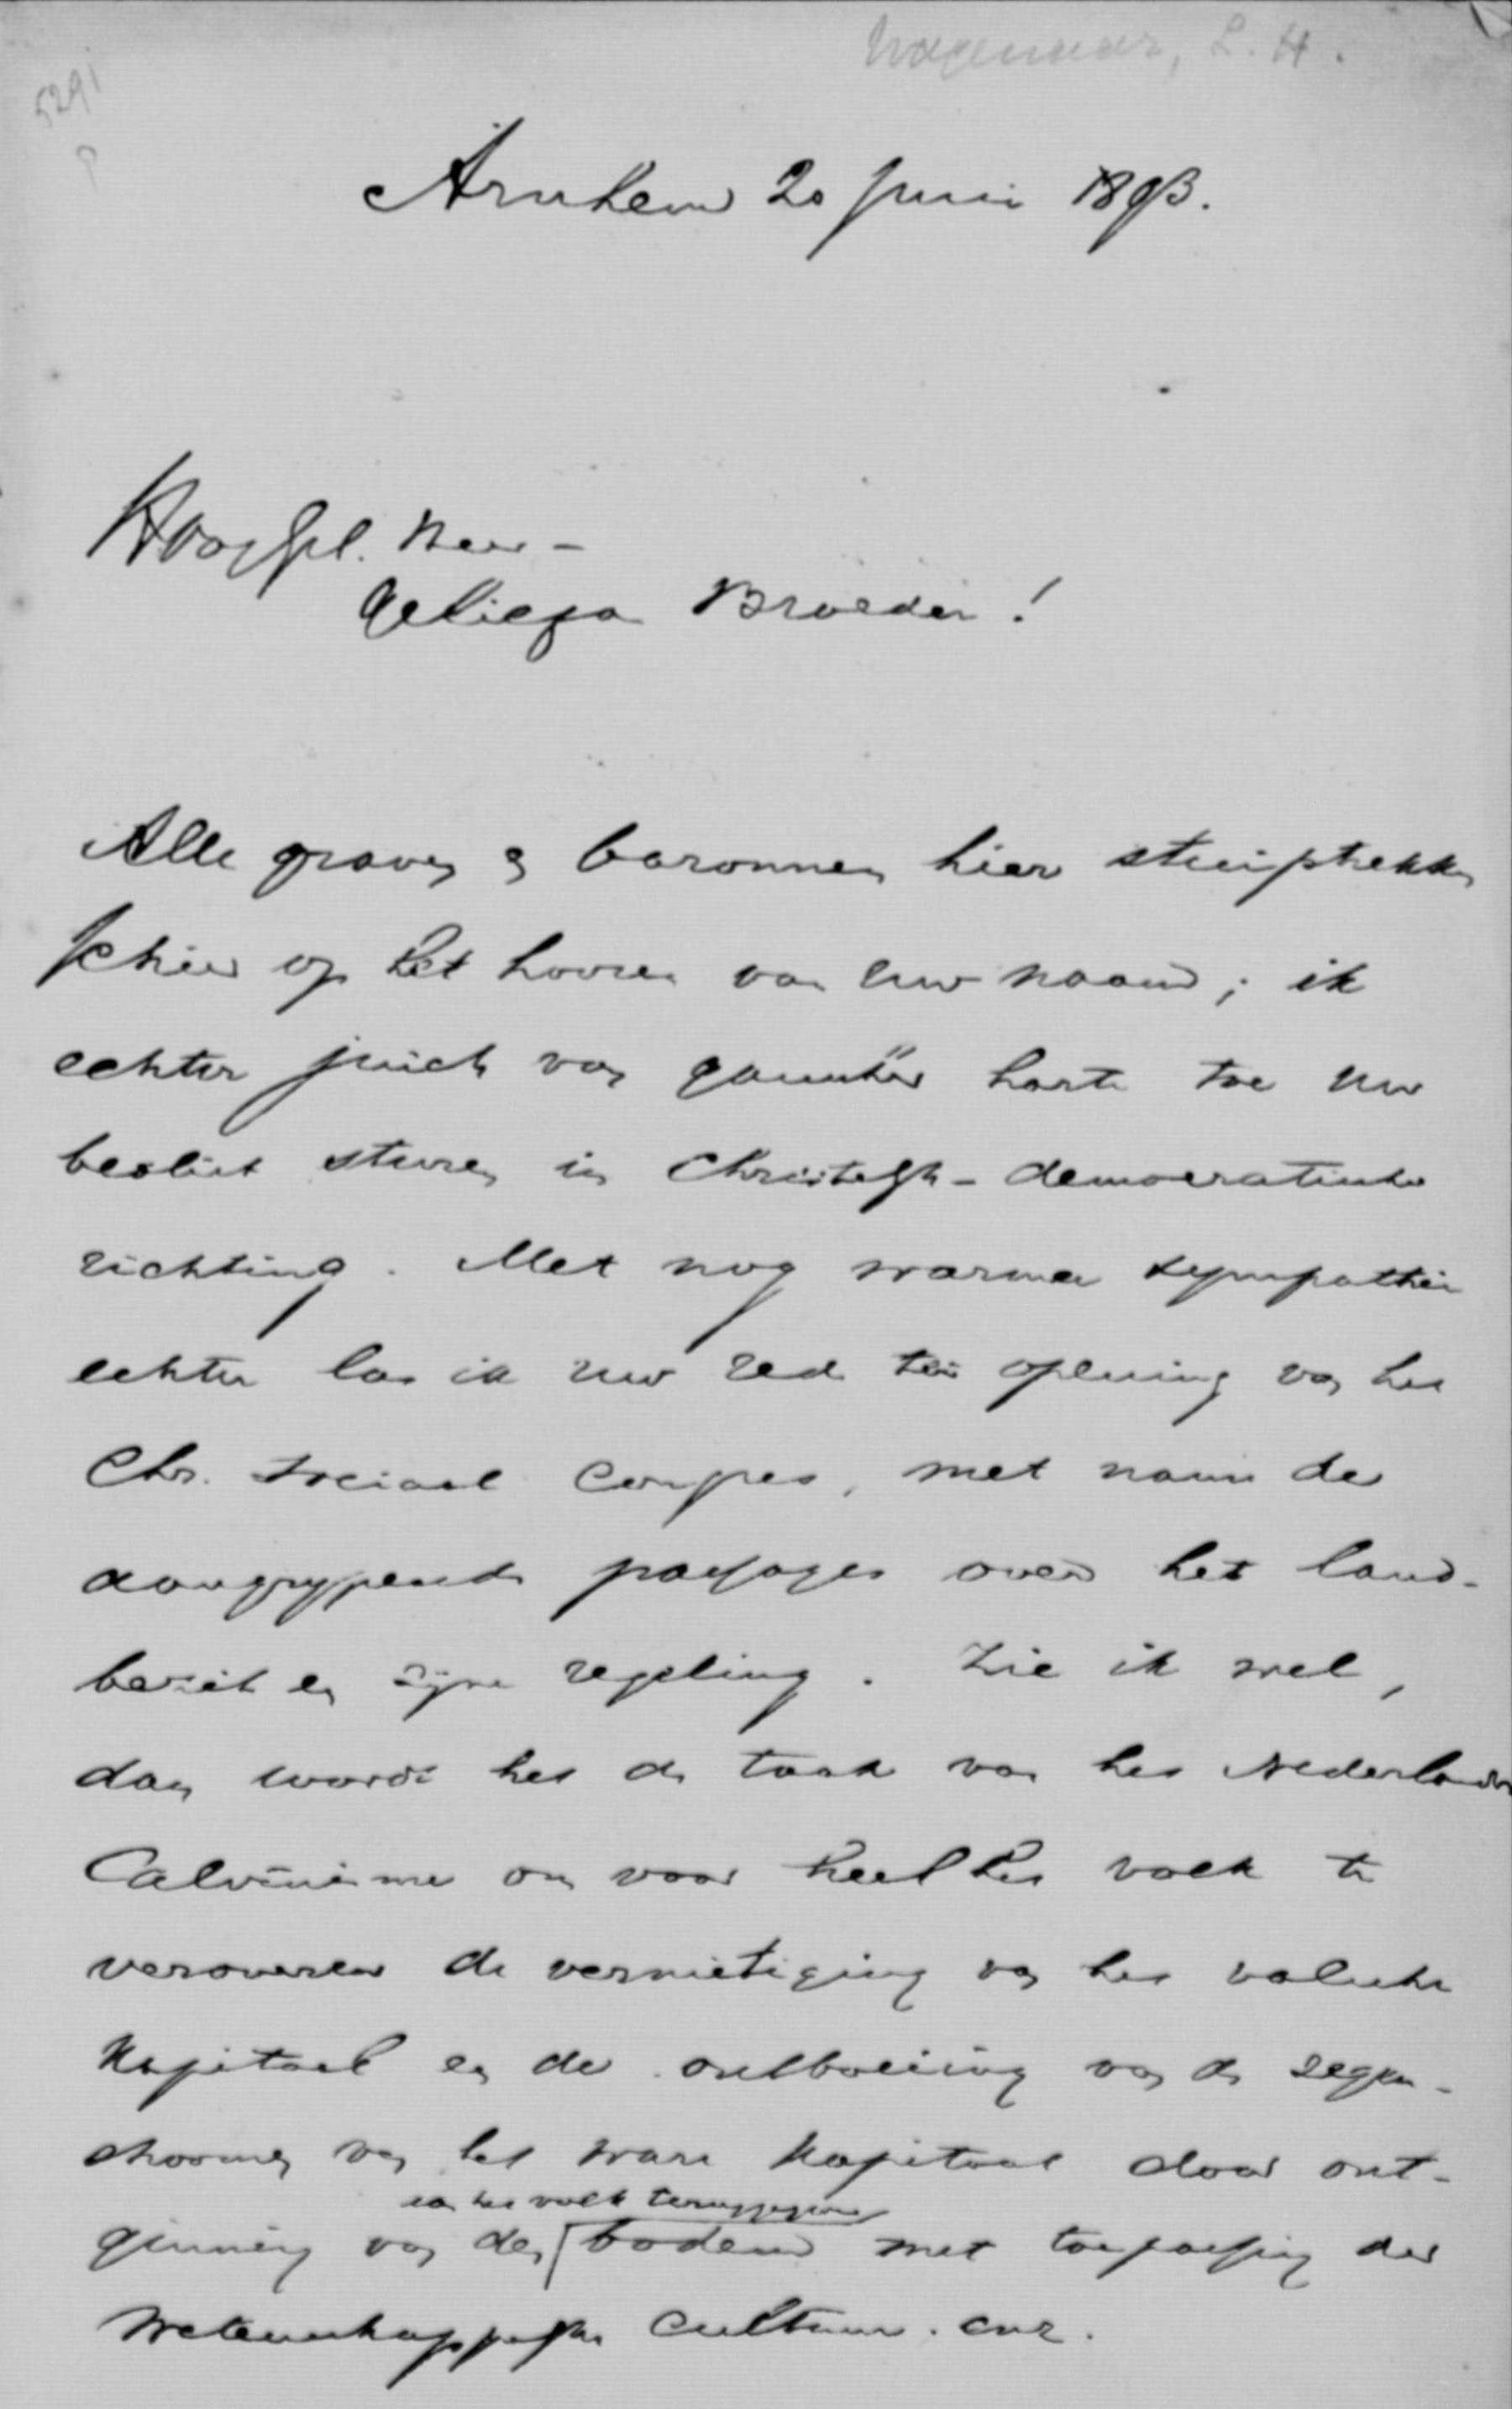 Wagenaar, L. H.
5291
P
Arnhem 20 Juni 1893.
HoogGel. Heer -
Geliefde Broeder!
Alle graven en baronnen hier stuiptrekken
schier op het hooren van Uw naam; ik
echter juich van ganscher harte toe Uw
beslist sturen in Christelijk-democratische
richting. Met nog warmer sympathie
echter las ik uw rede ter opening van het
Chr. Sociaal Congres, met name de
aangrypende passages over het land-
bezit en zijne regeling. Zie ik wel,
dan wordt het de taak van het Nederlandsch
Calvinisme om voor heel het volk te
veroveren de vernietiging van het valsche
Kapitaal en de ontboeiing van de zegen-
stroomen van het ware Kapitaal door ont-
aan het volk teruggegeven
ginning van den bodem met toepassing der
wetenschappelijke cultuur. enz.